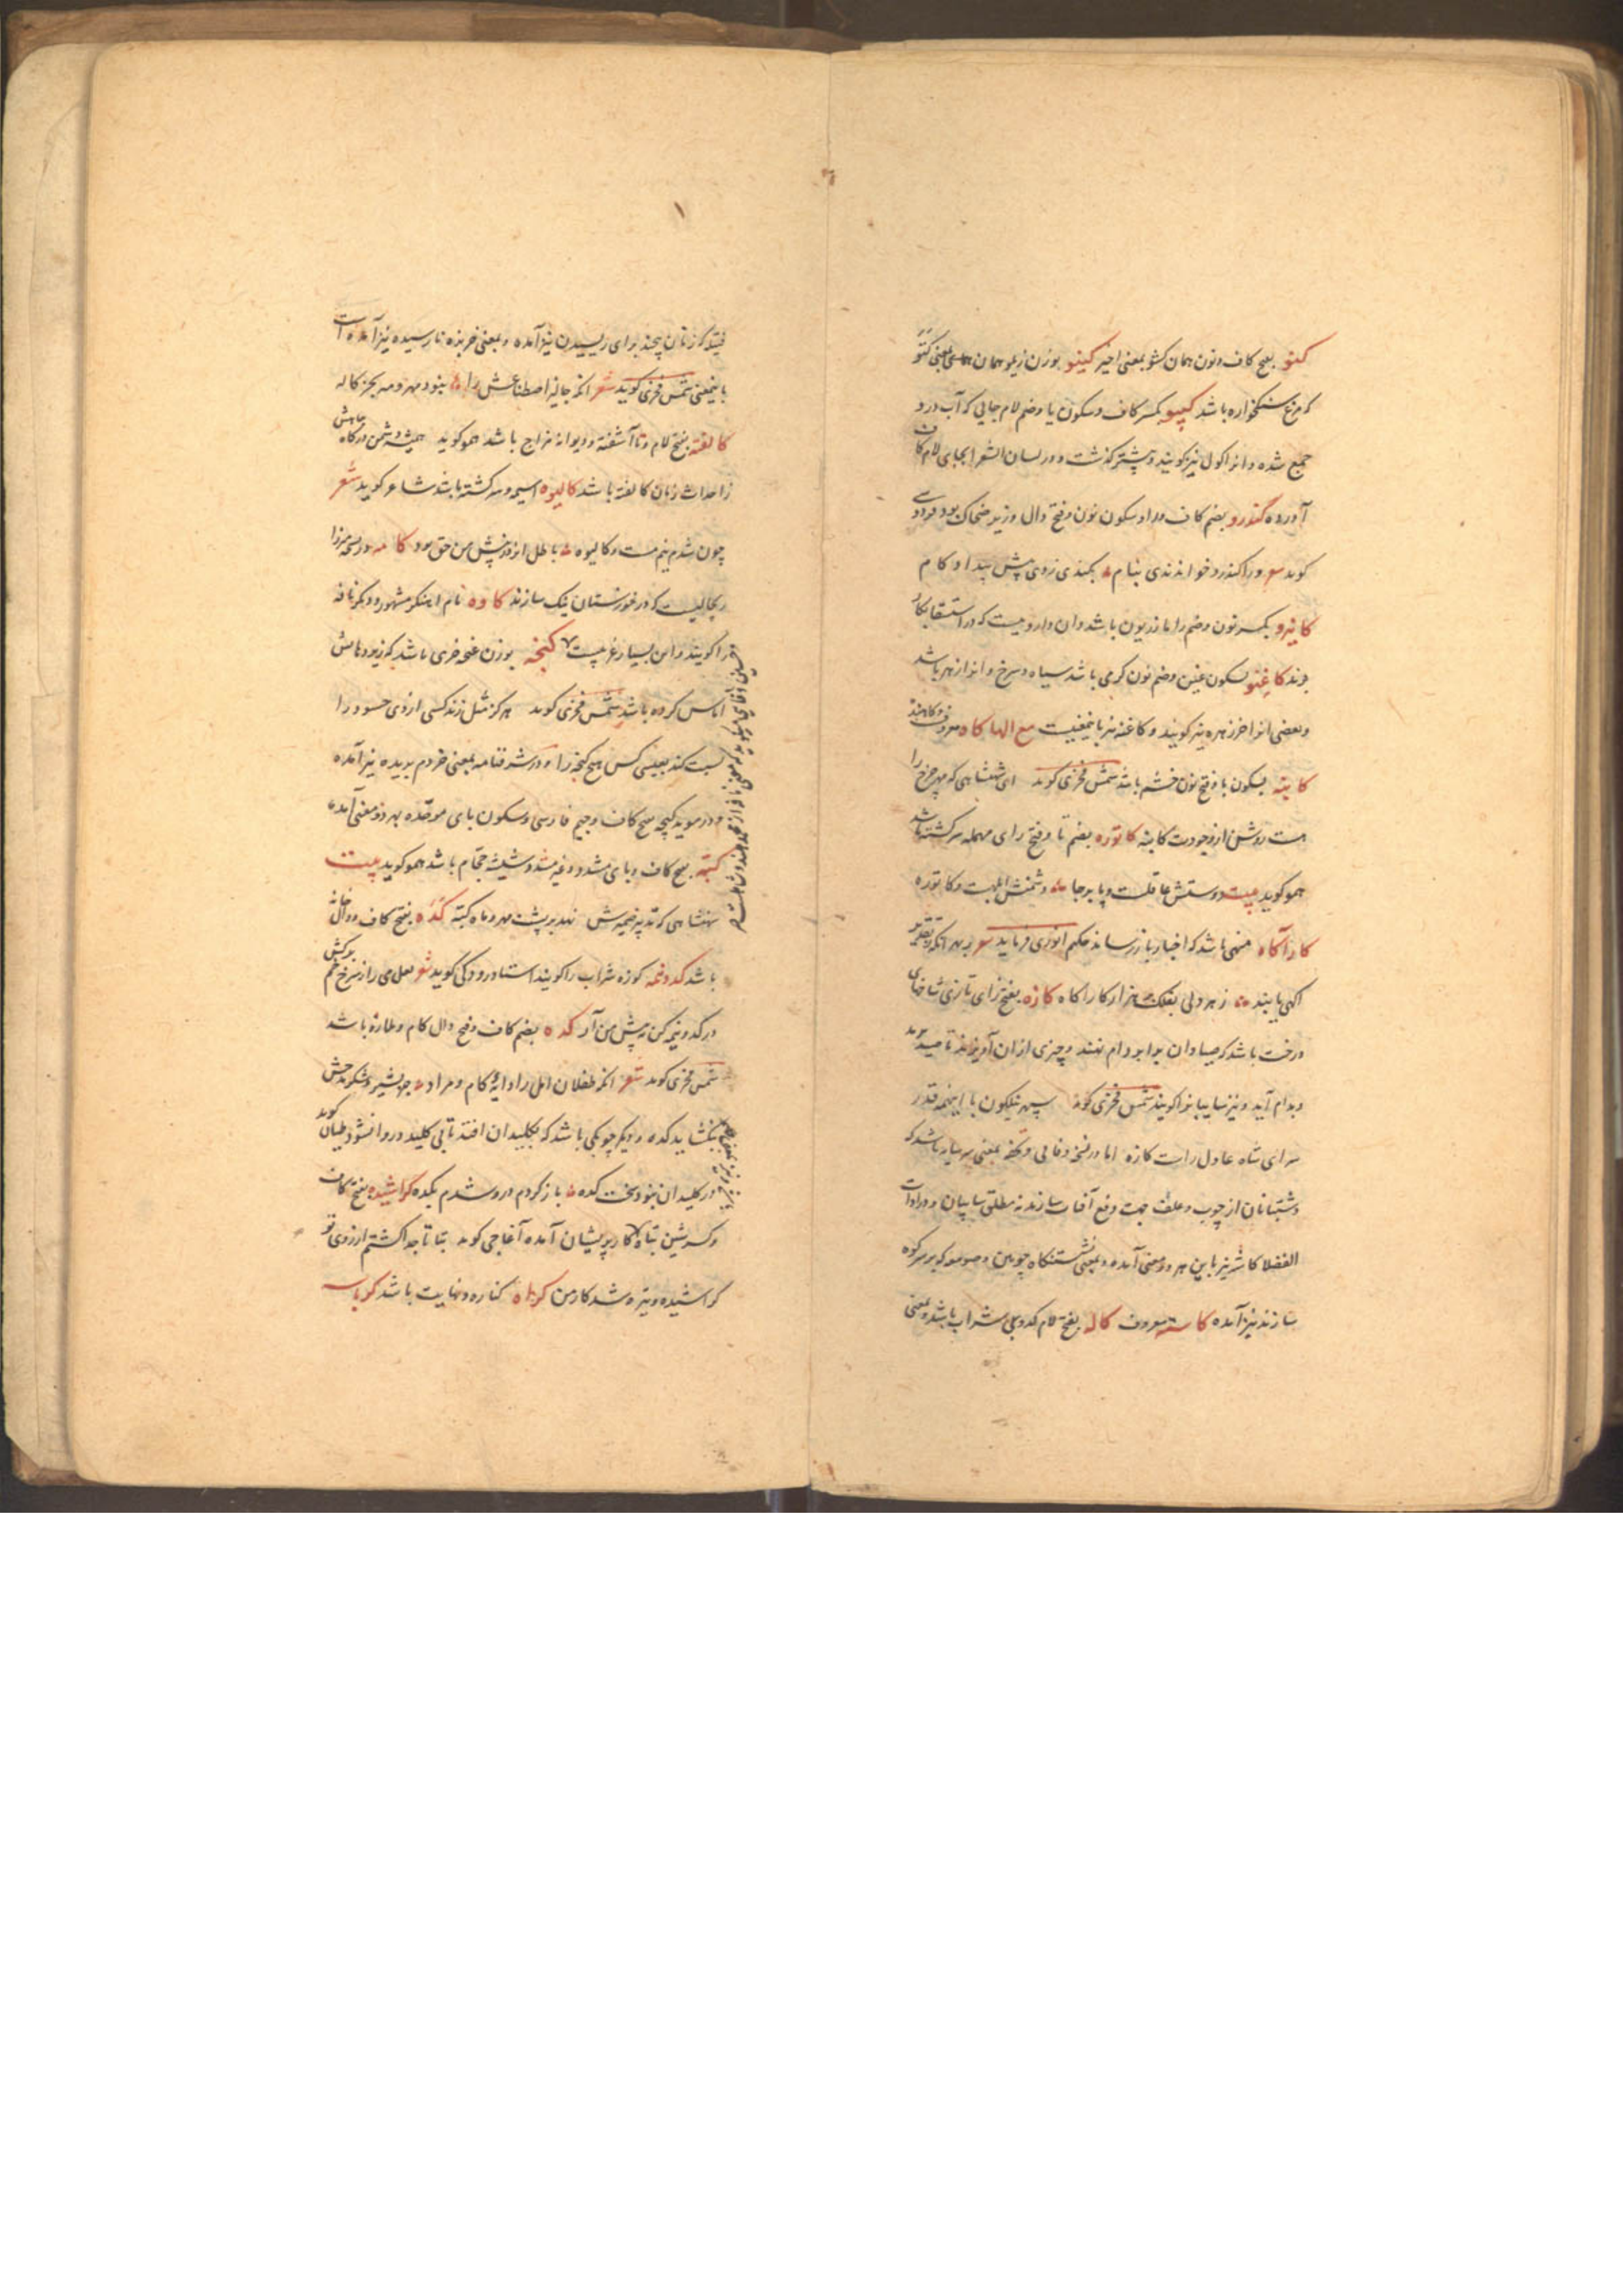 کنو بفتح کاف و نون همان کشو بمعنی اخیر کینو بوزن زیلو همان معنی کنو
که مرغ سنگخواره باشد کیپو بکسر کاف و سکون یا و ضم لام جایی که آب درو
جمع شده و انرا کول نیز کویند و پیشتر کذشت و در لسان الشعرا بجای لام کاف
آورده کندرو بضم کاف و را و سکون نون و فتح دال وزیر ضحاک بود فردوسی
کوید ورا کندرو خواندندی بنام بکندی زدی پیش بیداد کام
کانیرو بکسر نون و ضم را مازریون باشد و ان داروییست که در استسقا بکار
برند کاغنو بسکون غین و ضم نون کرمی باشد سیاه و سرخ و انرا زهر باشد
و بعضی انرا خرزهره نیز کویند و کاغنه نیز باینمعنیست مع الها کاه معروف و کاهنده
کابنه بسکون با و فتح نون خشم باشد شمس فخری کوید ای شهنشاهی که مهر چرخ را
هست روشن از وجودت کابنه کاتوره بضم تا و فتح رای مهمله سرکشته باشد
همو کوید بیت دوستش عاقلست و پابرجا دشمنش ابلهست و کاتوره
کارآکاه منهی باشد که اخبار باز رساند حکیم انوری فرماید شعر بهر انکه ز تقدیر
اکهی یابند ز هر دلی بفلک هزار کاراکاه کازه بفتح زای تازی شاخهای
درخت باشد که صیادان برابر دام نهند و چیزی ازان آویزند تا صید برمد
و بدام آید و نیز سایبانرا کویند شمس فخری کوید سپهر نیلکون با اینهمه قدر
سرای شاه عادل راست کازه اما در نسخه وفائی و تحفه بمعنی سرسایه باشد که
دشتبانان از چوب و علف جهت دفع آفات سازند نه مطلق سایبان و در ادات
الفضلا کاژه نیز باین هر دو معنی آمده و بمعنی نشستنکاه چوبین و صومعه که بر سر کوه
سازند نیز آمده کاسه معروف کاله بفتح لام کدوی شراب باشد و بمعنی
فتیله که زنان پیچند برای ریسیدن نیز آمده و بمعنی خربزه نارسیده نیز آمده است
باینمعنی شمس فخری کوید شعر انکه جالیز اصطناعش را نبود مهر و مه بجز کاله
کالفته بفتح لام و تا آشفته و دیوانه مزاج باشد همو کوید همیشه دشمن درکاه جاهش
ز احداث زمان کالفته باشد کالیوه اسیمه و سرکشته باشد شاعر کوید شعر
چون شدم نیم مست و کالیوه باطل انزد پیش من حق بود کامه در نسخه میرزا
ریچالیست که در خوزستان نیک سازند کاوه نام اهنکر مشهور و دیکر نافه
را کویند و این بسیار غریبست کنجه بوزن غنچه خری باشد که زیر دهانش
آماس کرده باشد شمس فخری کوید هرکز مثل زند کسی از روی حسود را
نسبت کند بعیسی کس هیچ کنجه را و در شرفنامه بمعنی خر دم بریده نیز آمده
و در موید کبجه بفتح کاف و جیم فارسی و سکون بای موحده بهر دو معنی آمده
کبه بفتح کاف و بای مشدد و غیر مشدد شیشه حجام باشد همو کوید بیت
شهنشاهی که تدبیر ضمیرش نهد بر پشت مهر و ماه کبه کده بفتح کاف و دال خانه
باشد کدونیمه کوزه شراب را کویند استاد رودکی کوید شعر لعل می را ز سرخ خم برکش
در کدونیمه کن به پیش من آر کده بضم کاف و فتح دال کام و ملازه باشد
شمس فخری کوید شعر انکه طفلان امل را دایه کام و مراد جز بشیر و شکر مدحش
نکشاید کده و دیکر چوبکی باشد که بکلیدان افتد تا بی کلید در وا نشود طیان کوید
در کلیدان نبود سخت کده باز کردم در و شدم بکده کراشیده بفتح کاف
و کسر شین تباه کار و پریشان آمده آغاجی کوید بتا تا جدا کشتم از روی تو
کراشیده و تیره شد کار من کرانه کناره و نهایت باشد کرباسه